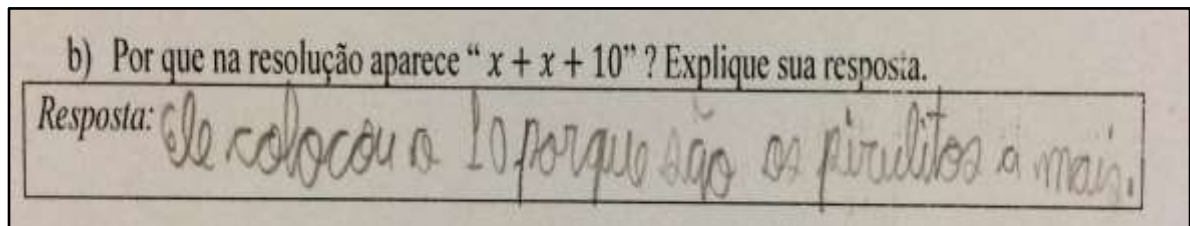 b) Por que na resolução aparece “ x + x + 10” ? Explique sua resposta.
Resposta: Ele colocou o 10 porque são os pirulitos a mais.